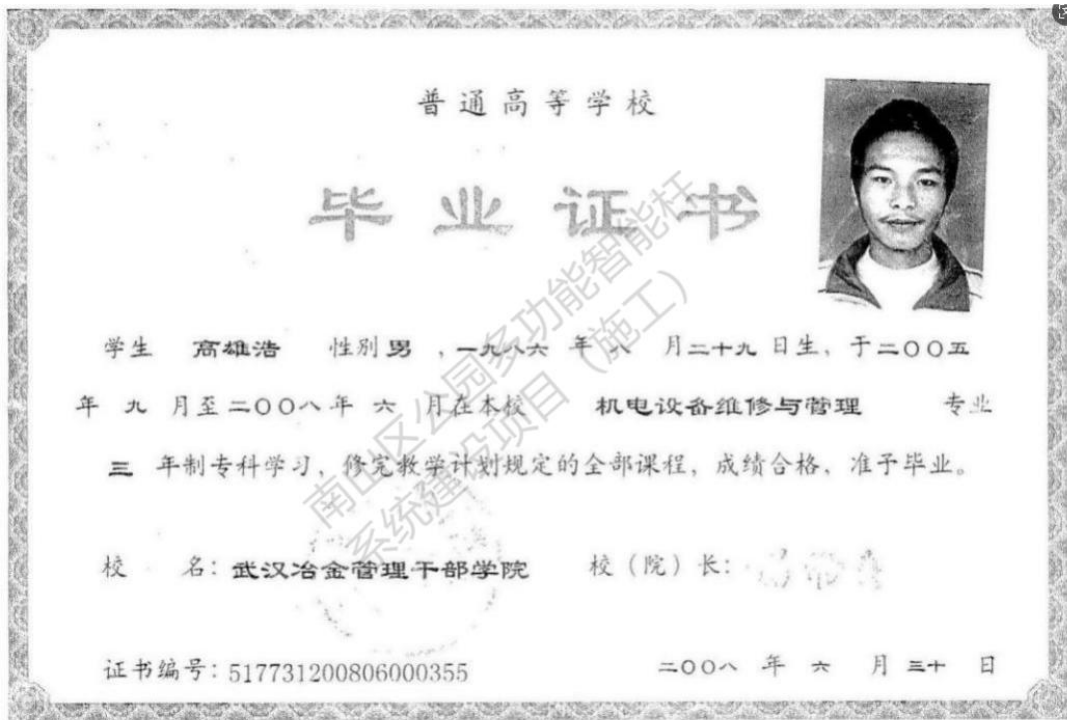 普通高等学校
毕业证书
学生 高雄浩 性别男，一九八六年八月二十九日生，于二〇〇五
年九月至二〇〇八年六月在本校 机电设备维修与管理 专业
三年制专科学习，修完教学计划规定的全部课程，成绩合格，准予毕业。
校 名：武汉冶金管理干部学院 校（院）长：
证书编号：517731200806000355 二〇〇八年六月三十日
南山区公园多功能智能杆
系统建设项目（施工）